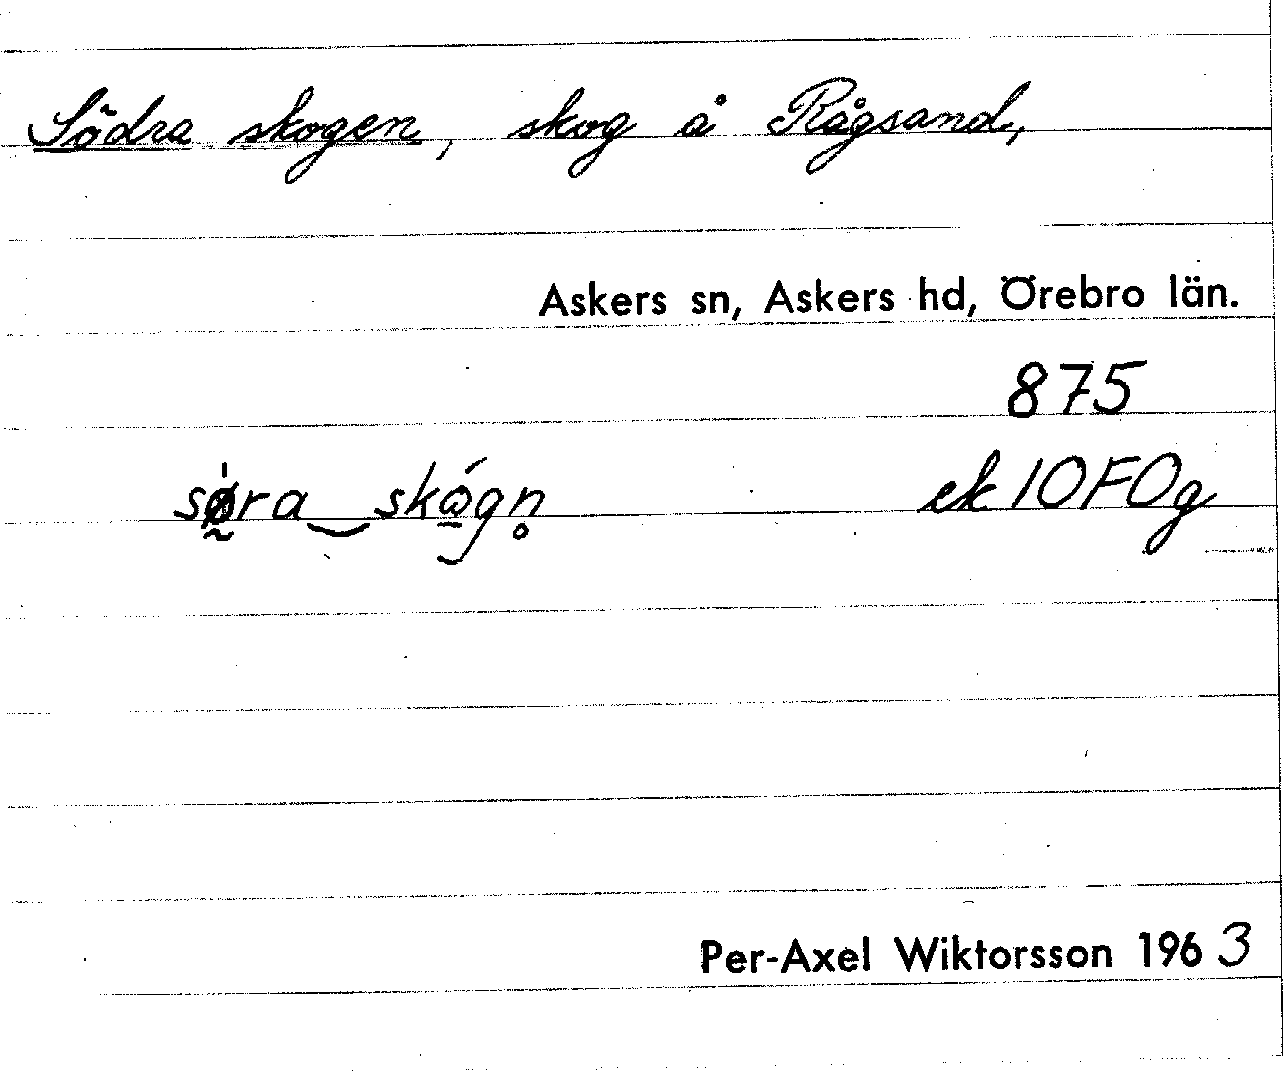 Södra skogen, skog å Rågsand,
Askers sn, Askers hd, Örebro län.
875
søra skógn̥ ek 10F0g
Per-Axel Wiktorsson 1963